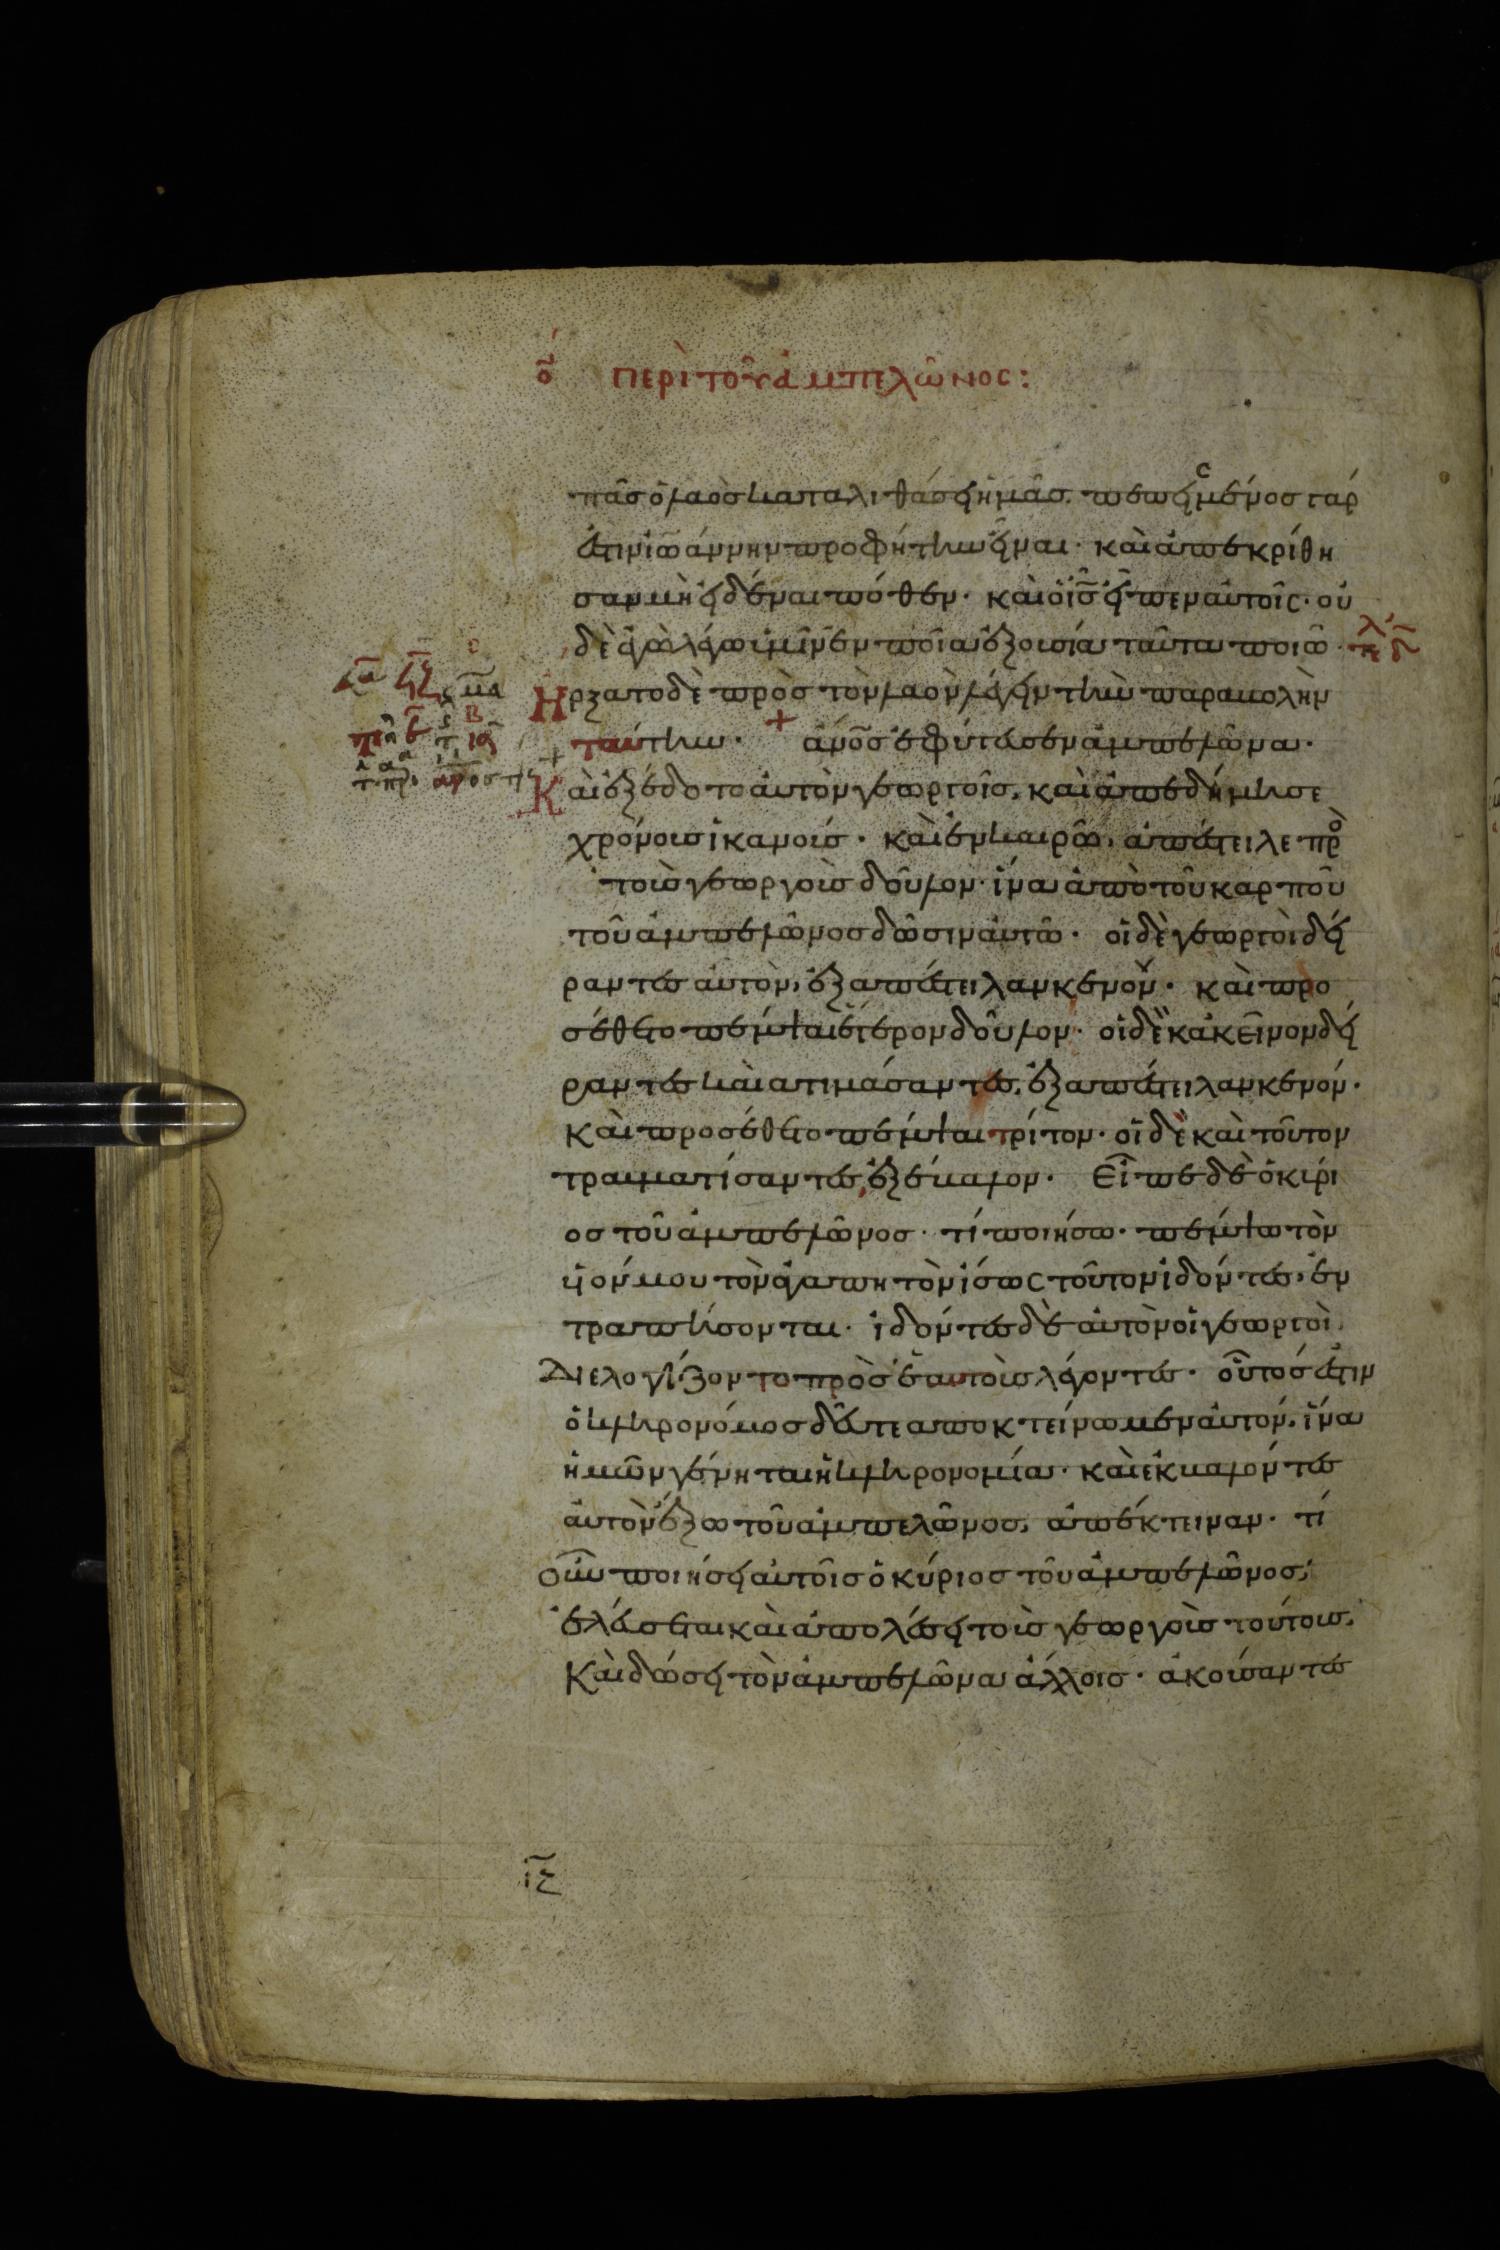 ο̅ περὶ τοῦ ἀμπελῶνος:
πᾶσ ὁ λαὸσ καταλιθάσει ἡμᾶσ. πεπεισμένοσ γάρ
ἐστιν ἰωάννην προφήτην εἶναι· καὶ ἀπεκρίθη
σαν μὴ εἰδέναι πόθεν· καὶ ὁ ἰ̅σ̅ εἶπεν αὐτοῖς· οὐ
δὲ ἐγὼ λέγω ὑμῖν ἐν ποίᾳ ἐξουσίᾳ ταῦτα ποιῶ·
Ηρξατο δὲ πρὸσ τὸν λαὸν λέγειν τὴν παραβολὴν
ταύτην· + ἀν̅ο̅σ ἐφύτευσεν ἀμπελῶνα·
Καὶ ἐξέδοτο αὐτὸν γεωργοῖσ, καὶ ἀπεδήμησε
χρόνουσ ἱκανούσ· καὶ ἐν καιρῶ, ἀπέστειλε πρὸ
τοὺσ γεωργοὺσ δοῦλον· ἵνα ἀπὸ τοῦ καρποῦ
τοῦ ἀμπελῶνοσ δῶσιν αὐτῶ· οἱ δὲ γεωργοὶ δεί
ραντεσ αὐτὸν, ἐξαπέστειλαν κενόν· καὶ προ
σέθετο πέμψαι ἕτερον δοῦλον· οἱ δὲ κἀκεῖνον δεί
ραντεσ καὶ ατιμάσαντεσ, ἐξαπέστειλαν κενόν·
Καὶ προσέθετο πέμψαι τρίτον· οἱ δὲ καὶ τοῦτον
τραυματίσαντεσ, ἐξέβαλον· Εἶπε δὲ ὁ κύρι
οσ τοῦ ἀμπελῶνοσ· τί ποιήσω· πέμψω τὸν
υἱόν μου τὸν ἀγαπητὸν ἴσως τοῦτον ἰδόντεσ, ἐν
τραπήσονται· ἰδόντεσ δὲ αὐτὸν οἱ γεωργοὶ,
Διελογίζοντο πρὸσ ἑαυτοὺσ λέγοντεσ· οὗτόσ ἐστιν
ὁ κληρονόμοσ δεῦτε αποκτείνωμεν αὐτόν, ἵνα
ἡμῶν γένηται ἡ κληρονομία· καὶ ἐκβαλόντεσ
αὐτὸν ἔξω τοῦ ἀμπελῶνοσ, ἀπέκτειναν· τί
οὖν ποιήσει αὐτοῖσ ὁ κύριοσ τοῦ ἀμπελῶνοσ;
ἐλεύσεται καὶ ἀπολέσει τοὺσ γεωργοὺσ τούτουσ.
Καὶ δώσει τὸν ἀμπελῶνα ἄλλοισ· ἀκούσαντεσ
ι̅ξ̅